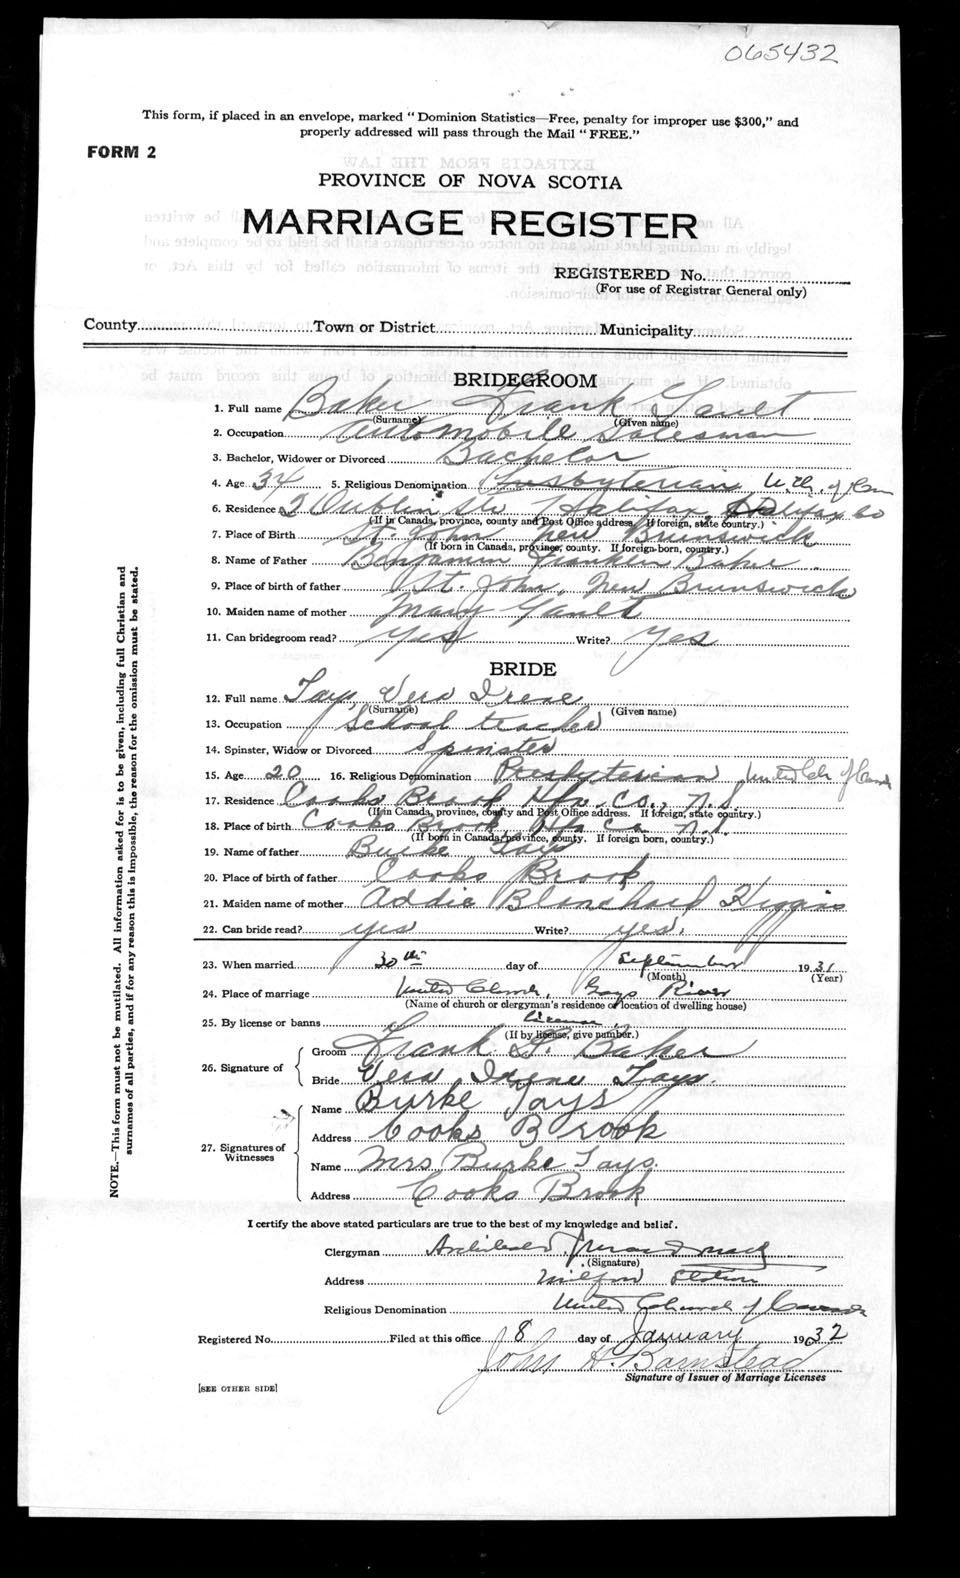 065432
This form, if placed in an envelope, marked "Dominion Statistics—Free, penalty for improper use $300," and
properly addressed will pass through the Mail "FREE."
FORM 2
PROVINCE OF NOVA SCOTIA
MARRIAGE REGISTER
REGISTERED No.
(For use of Registrar General only)
County Town or District Municipality
BRIDEGROOM
1. Full name Baker Frank Gault
(Surname) (Given name)
2. Occupation Automobile Salesman
3. Bachelor, Widower or Divorced Bachelor
4. Age 34 5. Religious Denomination Presbyterian U. Ch. of Can
6. Residence 2 Dublin St Halifax Halifax Co
(If in Canada, province, county and Post Office address. If foreign, state country.)
7. Place of Birth St. John New Brunswick
(If born in Canada, province, county. If foreign-born, country.)
8. Name of Father Benjamin Franklin Baker
9. Place of birth of father St. John, New Brunswick
10. Maiden name of mother Mary Gault
11. Can bridegroom read? Yes Write? Yes
BRIDE
12. Full name Tays, Vera Irene
(Surname) (Given name)
13. Occupation School teacher
14. Spinster, Widow or Divorced Spinster
15. Age 20 16. Religious Denomination Presbyterian United Ch. of Canada
17. Residence Cooks Brook Hfx. Co., N.S.
(If in Canada, province, county and Post Office address. If foreign, state country.)
18. Place of birth Cooks Brook Hfx Co N.S.
(If born in Canada, province, county. If foreign born, country.)
19. Name of father Burke Tays
20. Place of birth of father Cooks Brook
21. Maiden name of mother Addie Blanchard Higgins
22. Can bride read? yes Write? yes.
23. When married 30th day of September 1931
(Month) (Year)
24. Place of marriage United Church, Gays River
(Name of church or clergyman's residence or location of dwelling house)
25. By license or banns License
(If by license, give number.)
26. Signature of
Groom Frank G. Baker
Bride Vera Irene Tays.
27. Signatures of Witnesses
Name Burke Tays
Address Cooks Brook
Name Mrs Burke Tays.
Address Cooks Brook
I certify the above stated particulars are true to the best of my knowledge and belief.
Clergyman Archibald
(Signature)
Address Milford Station
Religious Denomination United Church of Canada
Registered No. Filed at this office 8 day of January 1932
John H. Barnstead
Signature of Issuer of Marriage Licenses
[SEE OTHER SIDE]
NOTE.—This form must not be mutilated. All information asked for is to be given, including full Christian and
surnames of all parties, and if for any reason this is impossible, the reason for the omission must be stated.